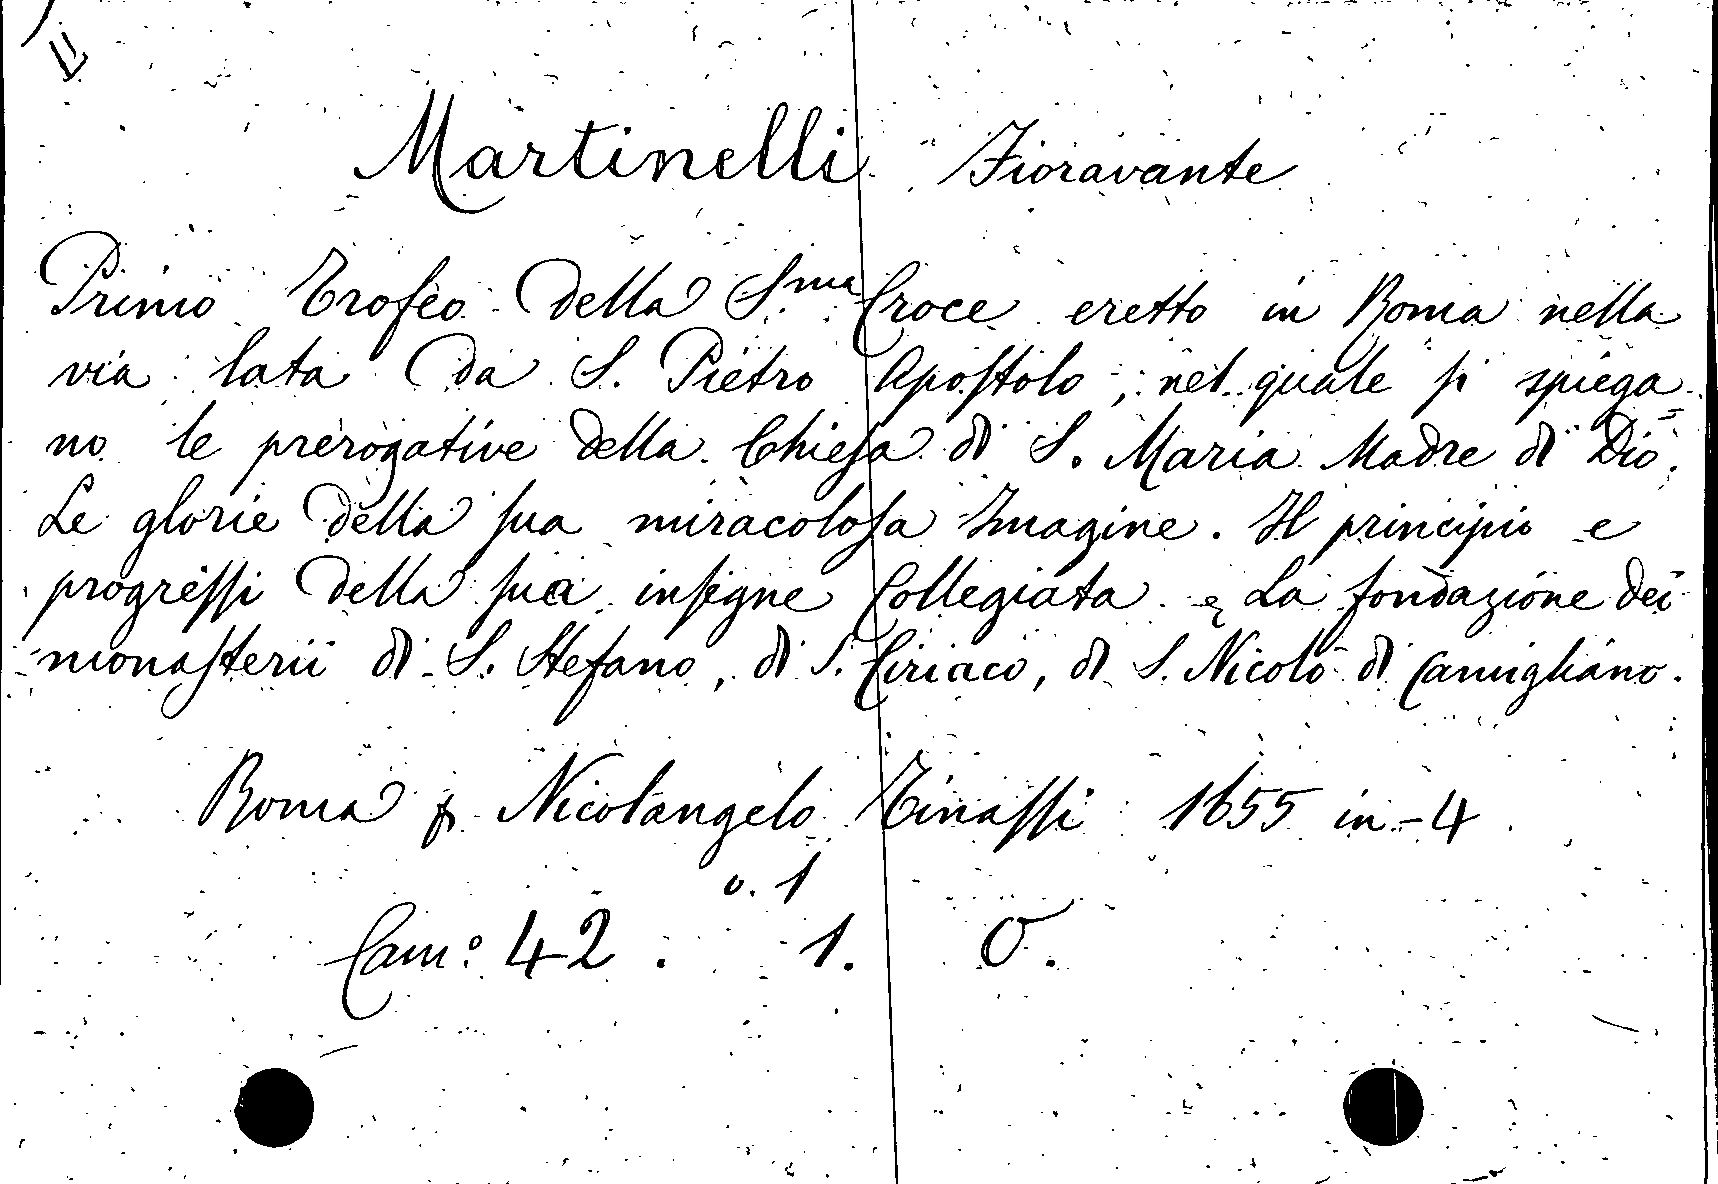 Martinelli Fioravante
Primo Trofeo della S.ma Croce eretto in Roma nella
via lata da S. Pietro Apoſtolo, nel quale ſi spiega
no le prerogative della Chieſa di S. Maria Madre di Dio.
Le glorie della ſua miracoloſa Imagine. Il principio e
progreſſi della ſua inſigne Collegiata e La fondazione dei
monaſterii di S. Stefano, di S. Ciriaco, di S. Nicolò di Camigliano.
Roma Nicolangelo Tinaſſi 1655 in-4
v. 1
Cam:o 42. 1. O.